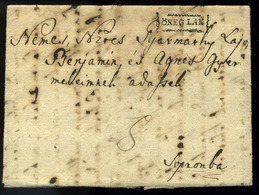 ÖREGLAK
Nemes, Nzós Gyarmathy Lajos,
Benjamin, és Agnes Gyer
mekeimnek adassék
8
Sopronba